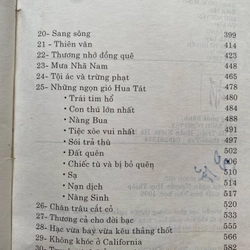 20- Sang sông 399
21 - Thiên văn 414
22- Thương nhớ đồng quê 423
23- Mưa Nhã Nam 453
24- Tội ác và trừng phạt 468
25- Những ngọn gió Hua Tát 478
• Trái tim hổ 480
• Con thú lớn nhất 484
• Nàng Bua 487
• Tiệc xòe vui nhất 490
• Sói trả thù
• Đất quên
• Chiếc tù và bị bỏ quên
• Sạ 509
• Nạn dịch 513
• Nàng Sinh 517
26- Chăn trâu cắt cỏ
27- Thương cả cho đời bạc 533
28- Hạc vừa bay vừa kêu thảng thốt 555
30- Không khóc ở California 566
585